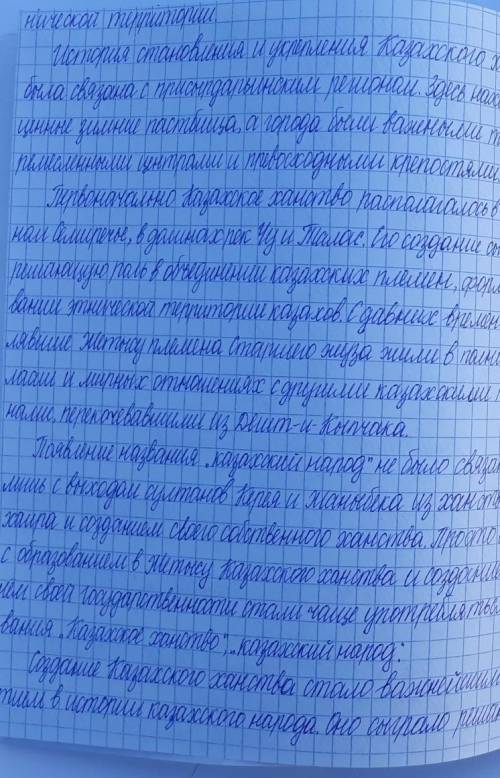 нической территории.
История становления и укрепления Казахского х
была связана с присырдарьинским регионом. Здесь нах
ценные зимние пастбища, а города были важными т
ремесленными центрами и превосходными крепостями
Первоначально Казахское ханство располагалось в
ном Семиречье, в долинах рек Чу и Талас. Его создание сы
решающую роль в объединении казахских племен, форм
вание этнической территории казахов. С давних времен
лявшие Жетысу племена Старшего жуза жили в полн
ласии и мирных отношениях с другими казахскими п
нами, перекочевавшими из Дешт-и-Кыпчака.
Появление названия „казахский народ" не было связа
лишь с выходом султанов Керея и Жаныбека из ханств
хаира и созданием своего собственного ханства. Просто
с образованием в Жетысу Казахского ханства и создание
ем своей государственности стали чаще употреблятьс
вания „Казахское ханство", „казахский народ".
Создание Казахского ханства стало важнейшим
тием в истории казахского народа. Оно сыграло реша